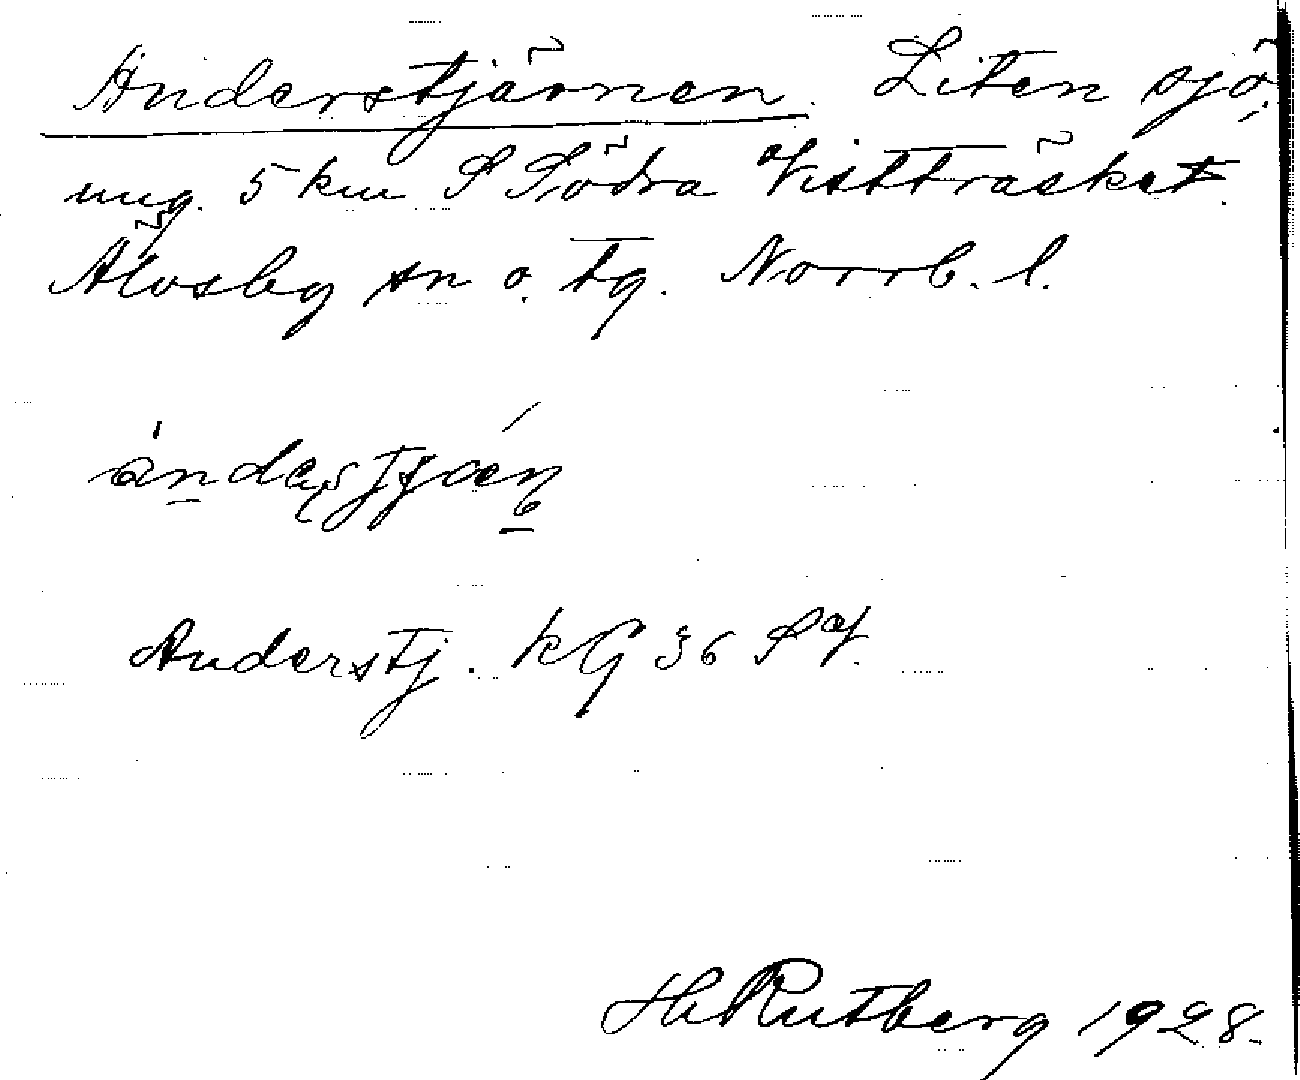 Anderstjärnen. Liten sjö,
ung. 5 km S Södra Vistträsket.
Älvsby sn o. tg. Norrb. l.
Anderstj. KG 36 SV.
H Rutberg 1928.